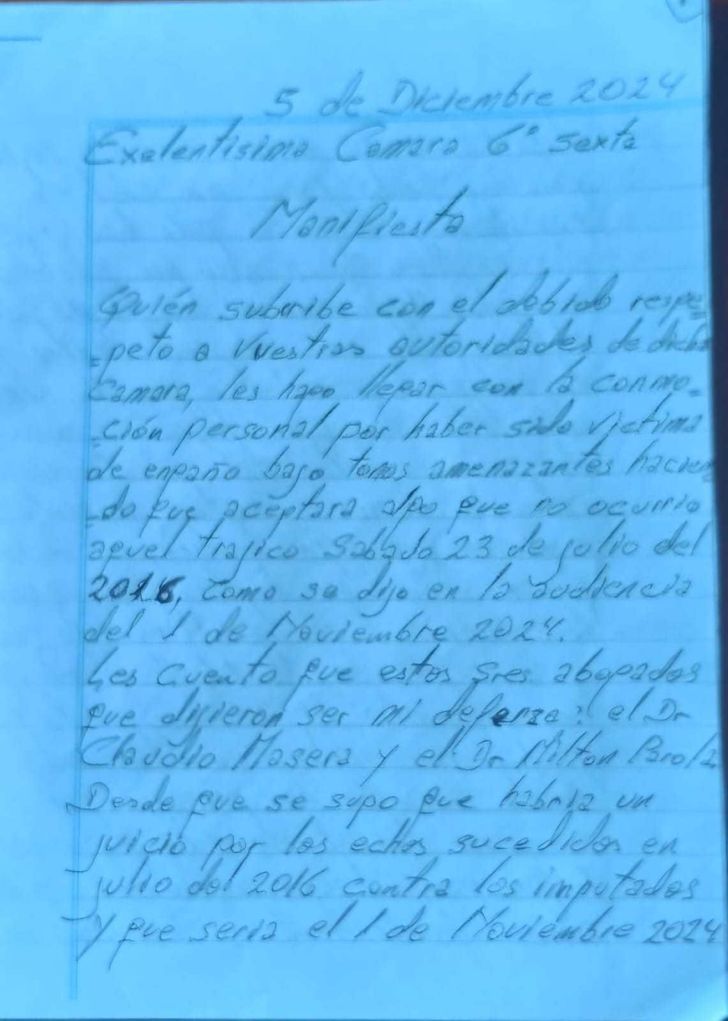 5 de Diciembre 2024
Exelentisima Camara 6° sexta
Manifiesto
Quién subcribe con el debido respe-
-peto a vuestras autoridades de dicha
Camara, les hago llegar con la conmo-
-ción personal por haber sido victima
de engaño bajo tonos amenazantes hacien
-do que aceptara algo que no ocurrio
aquel trajico Sabado 23 de julio del
2016, como se dijo en la audiencia
del 1 de Noviembre 2024.
Les cuento que estos sres abogados
que dijieron ser mi defenza: el Dr
Claudio Masera y el Dr Milton
Desde que se supo que habria un
juicio por los echos sucedidos en
julio del 2016 contra los imputados
y que seria el 1 de Noviembre 2024